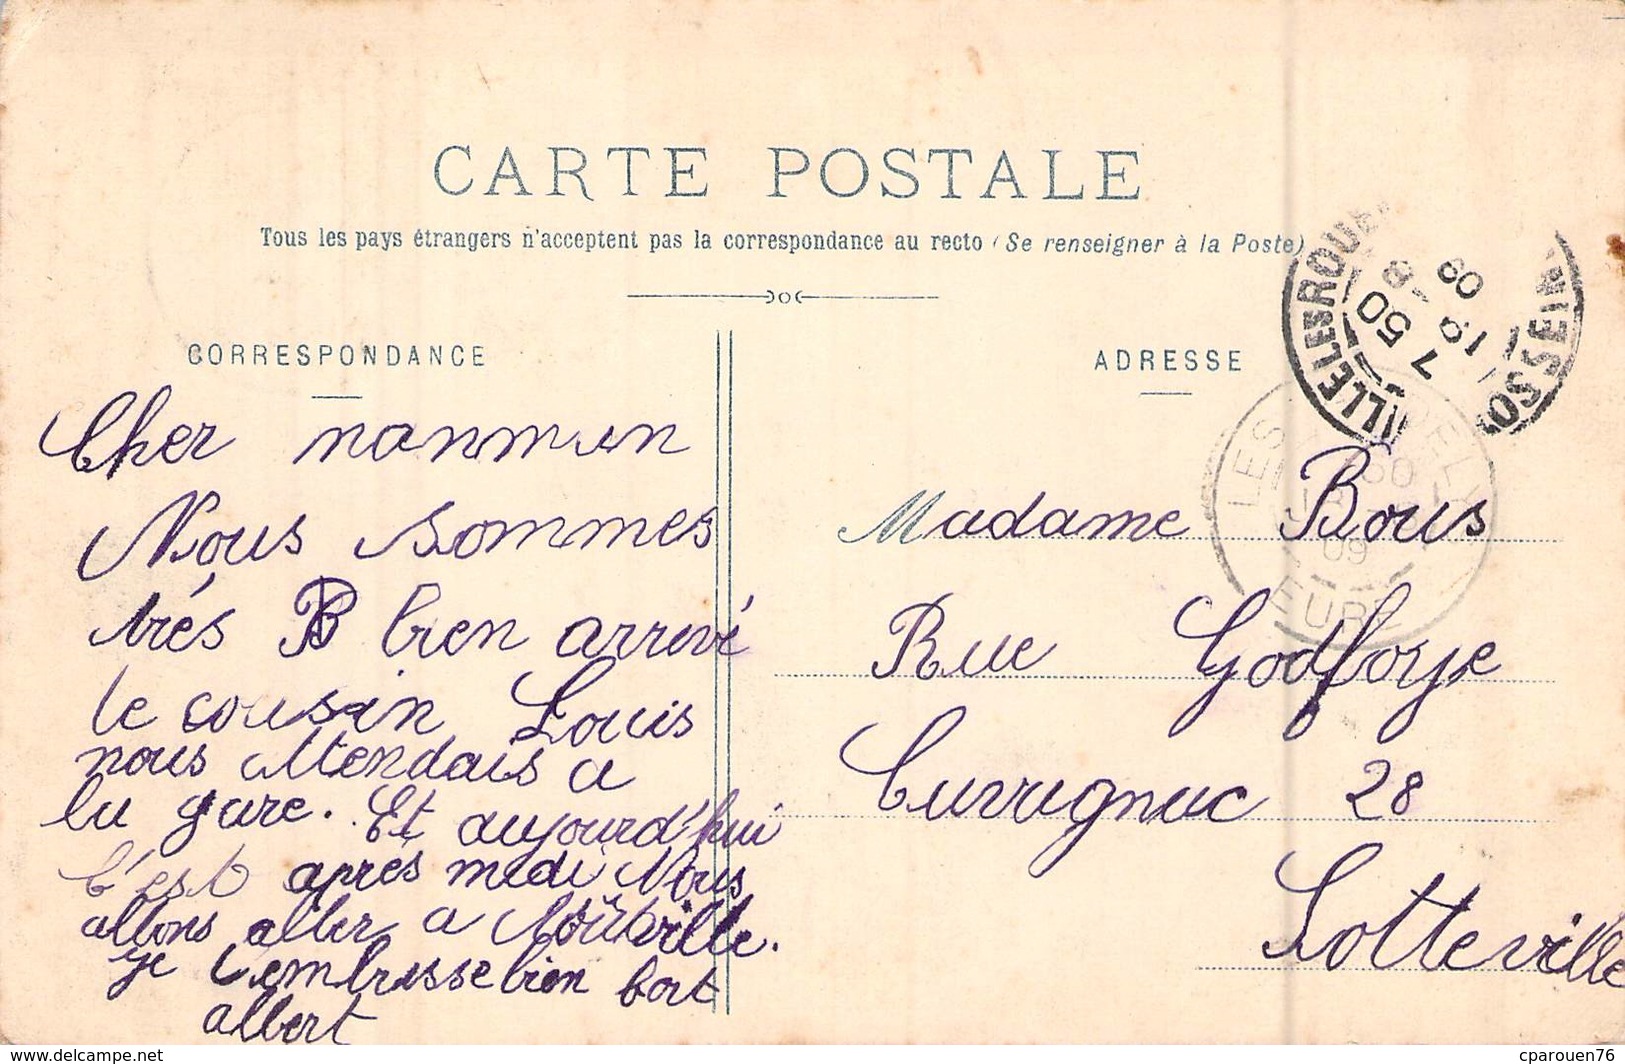 CARTE POSTALE
Tous les pays étrangers n'acceptent pas la correspondance au recto (Se renseigner à la Poste)
CORRESPONDANCE
Cher nanman
Nous sommes
très B bien arrivé
le cousin Louis
nous attendais a
la gare. Et aujourd'hui
c'est après midi Nous
allons aller a
je t'embrasse bien fort
albert
ADRESSE
Madame Bous
Rue Godfoye
Cuvvagnac 28
Sotteville
SOTTEVILLE LES ROUEN
7 50
19 8
09
LES
09
EURE
delcampe.net
cparouen76